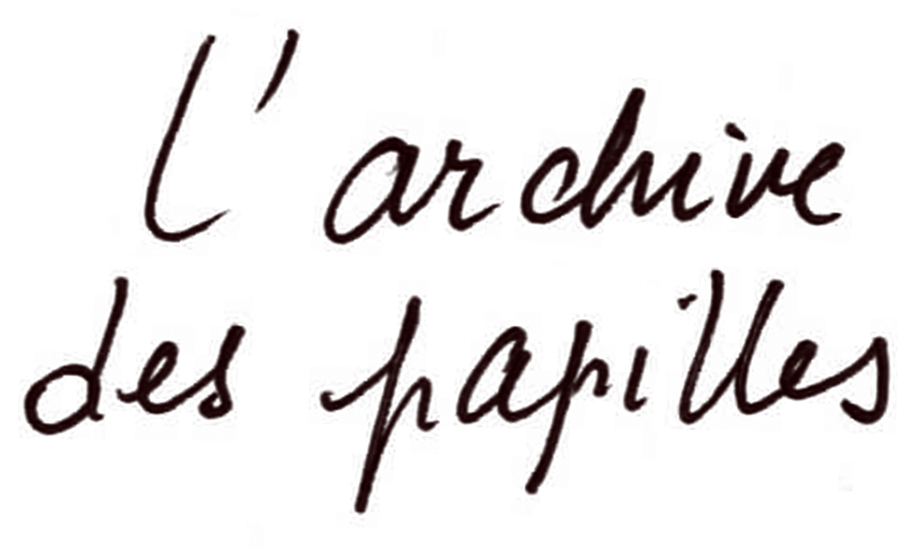 L'archive
des papilles